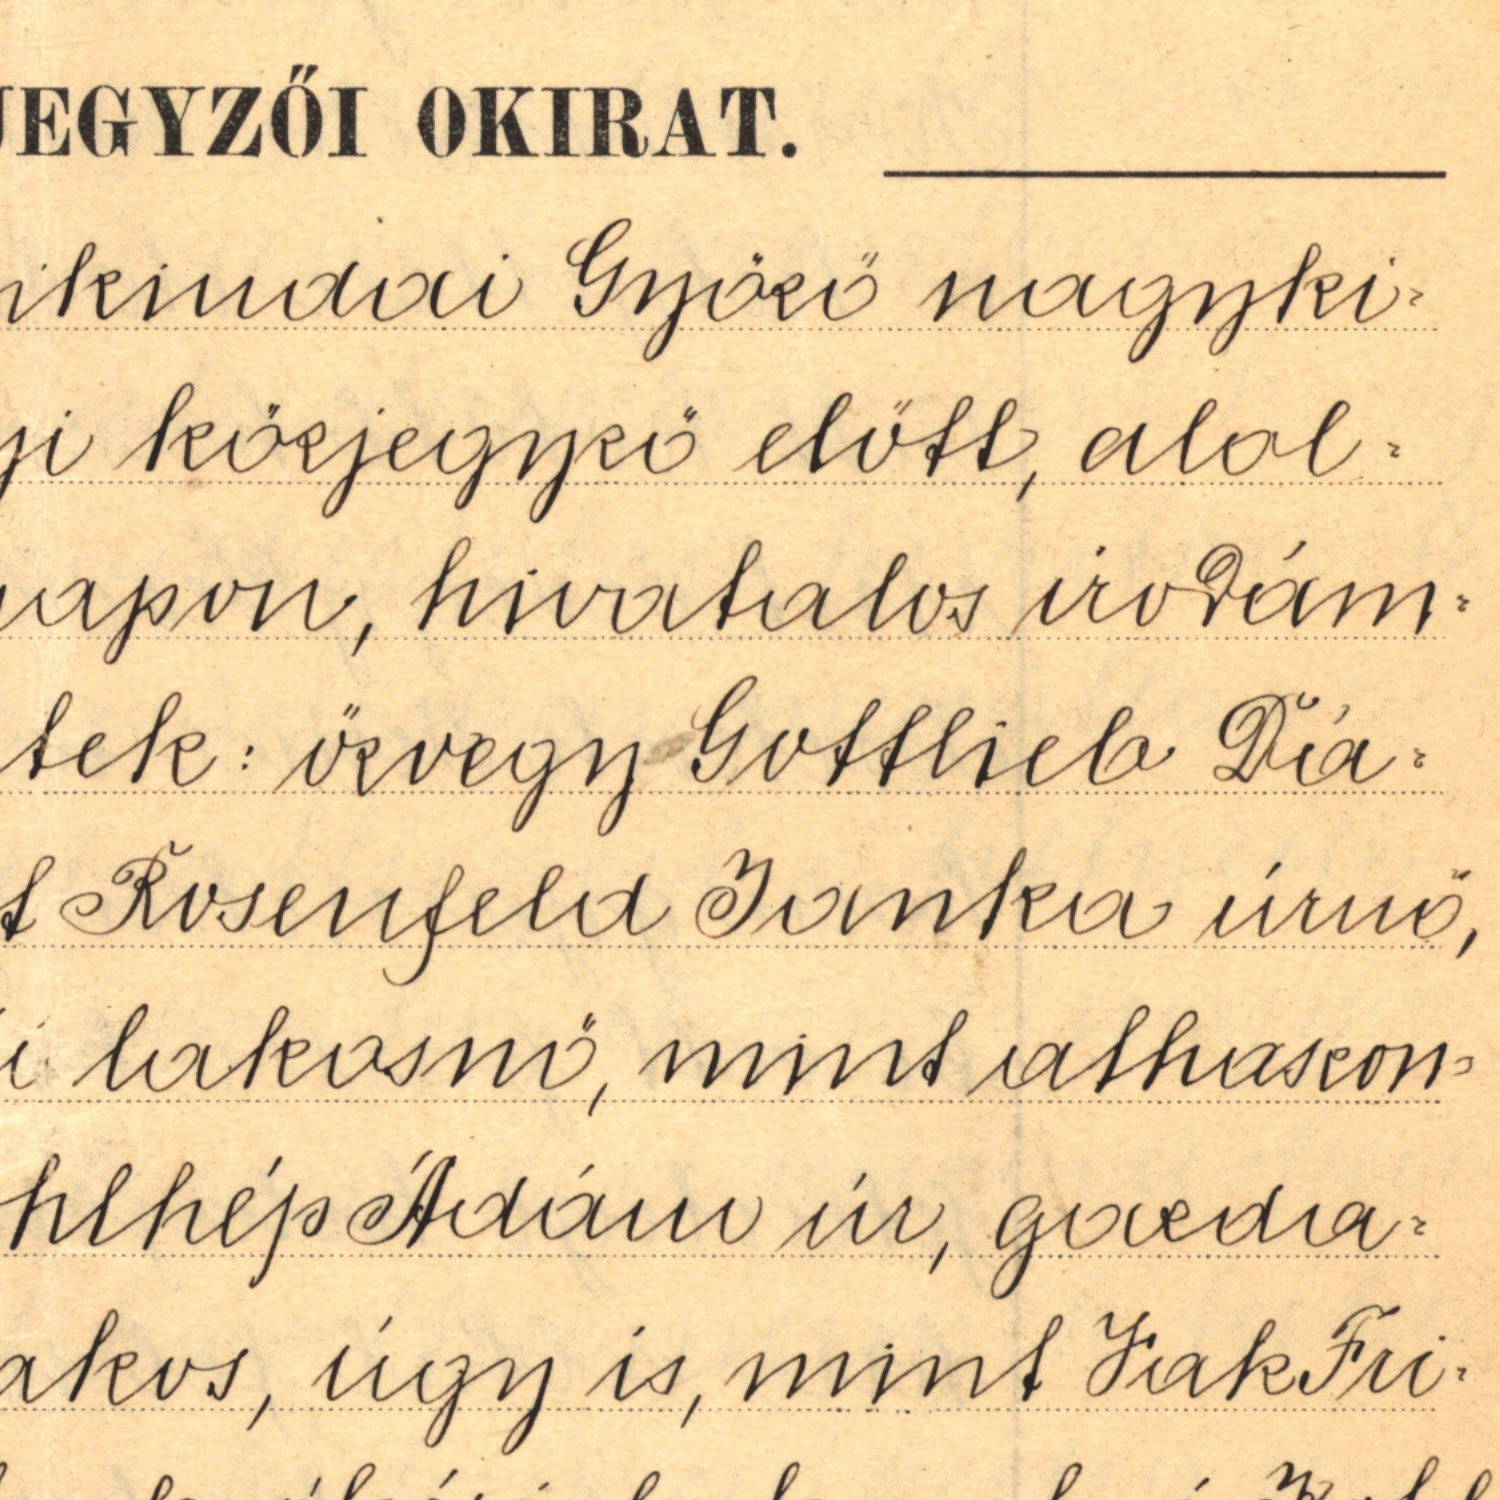 JEGYZŐI OKIRAT.
ikindai Győző nagyki-
yi közjegyző előtt, alol-
napon, hivatalos irodám-
tek: özvegy Gottlieb Diá-
t Rosenfeld Janka úrnő,
i lakosnő, mint althaszon-
hlhép Ádám úr, gazda-
akos, úgy is, mint Jak Fri-